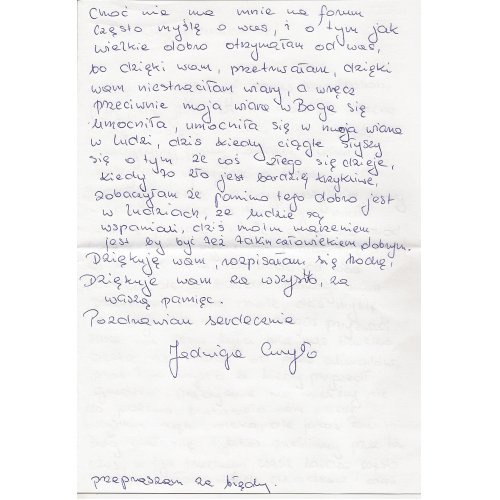 Choć nie ma mnie na forum
często myślę o was, i o tym jak
wielkie dobro otrzymałam od was,
bo dzięki wam, przetrwałam, dzięki
wam niestraciłam wiary, a wręcz
przeciwnie moja wiara w Boga się
umocniła, umocniła się w moja wiara
w ludzi, dziś kiedy ciągle słyszy
się o tym że coś złego się dzieje,
kiedy to zło jest bardziej krzykliwe,
zobaczyłam że pomimo tego dobro jest
w ludziach, że ludzie są
wspaniali, dziś moim marzeniem
jest by być też takim człowiekiem dobrym.
Dziękuję wam, rozpisałam się trochę,
Dziękuje wam za wszystko, za
waszą pamięc.
Pozdrawiam serdecznie
Jadwiga
przepraszam za błędy.